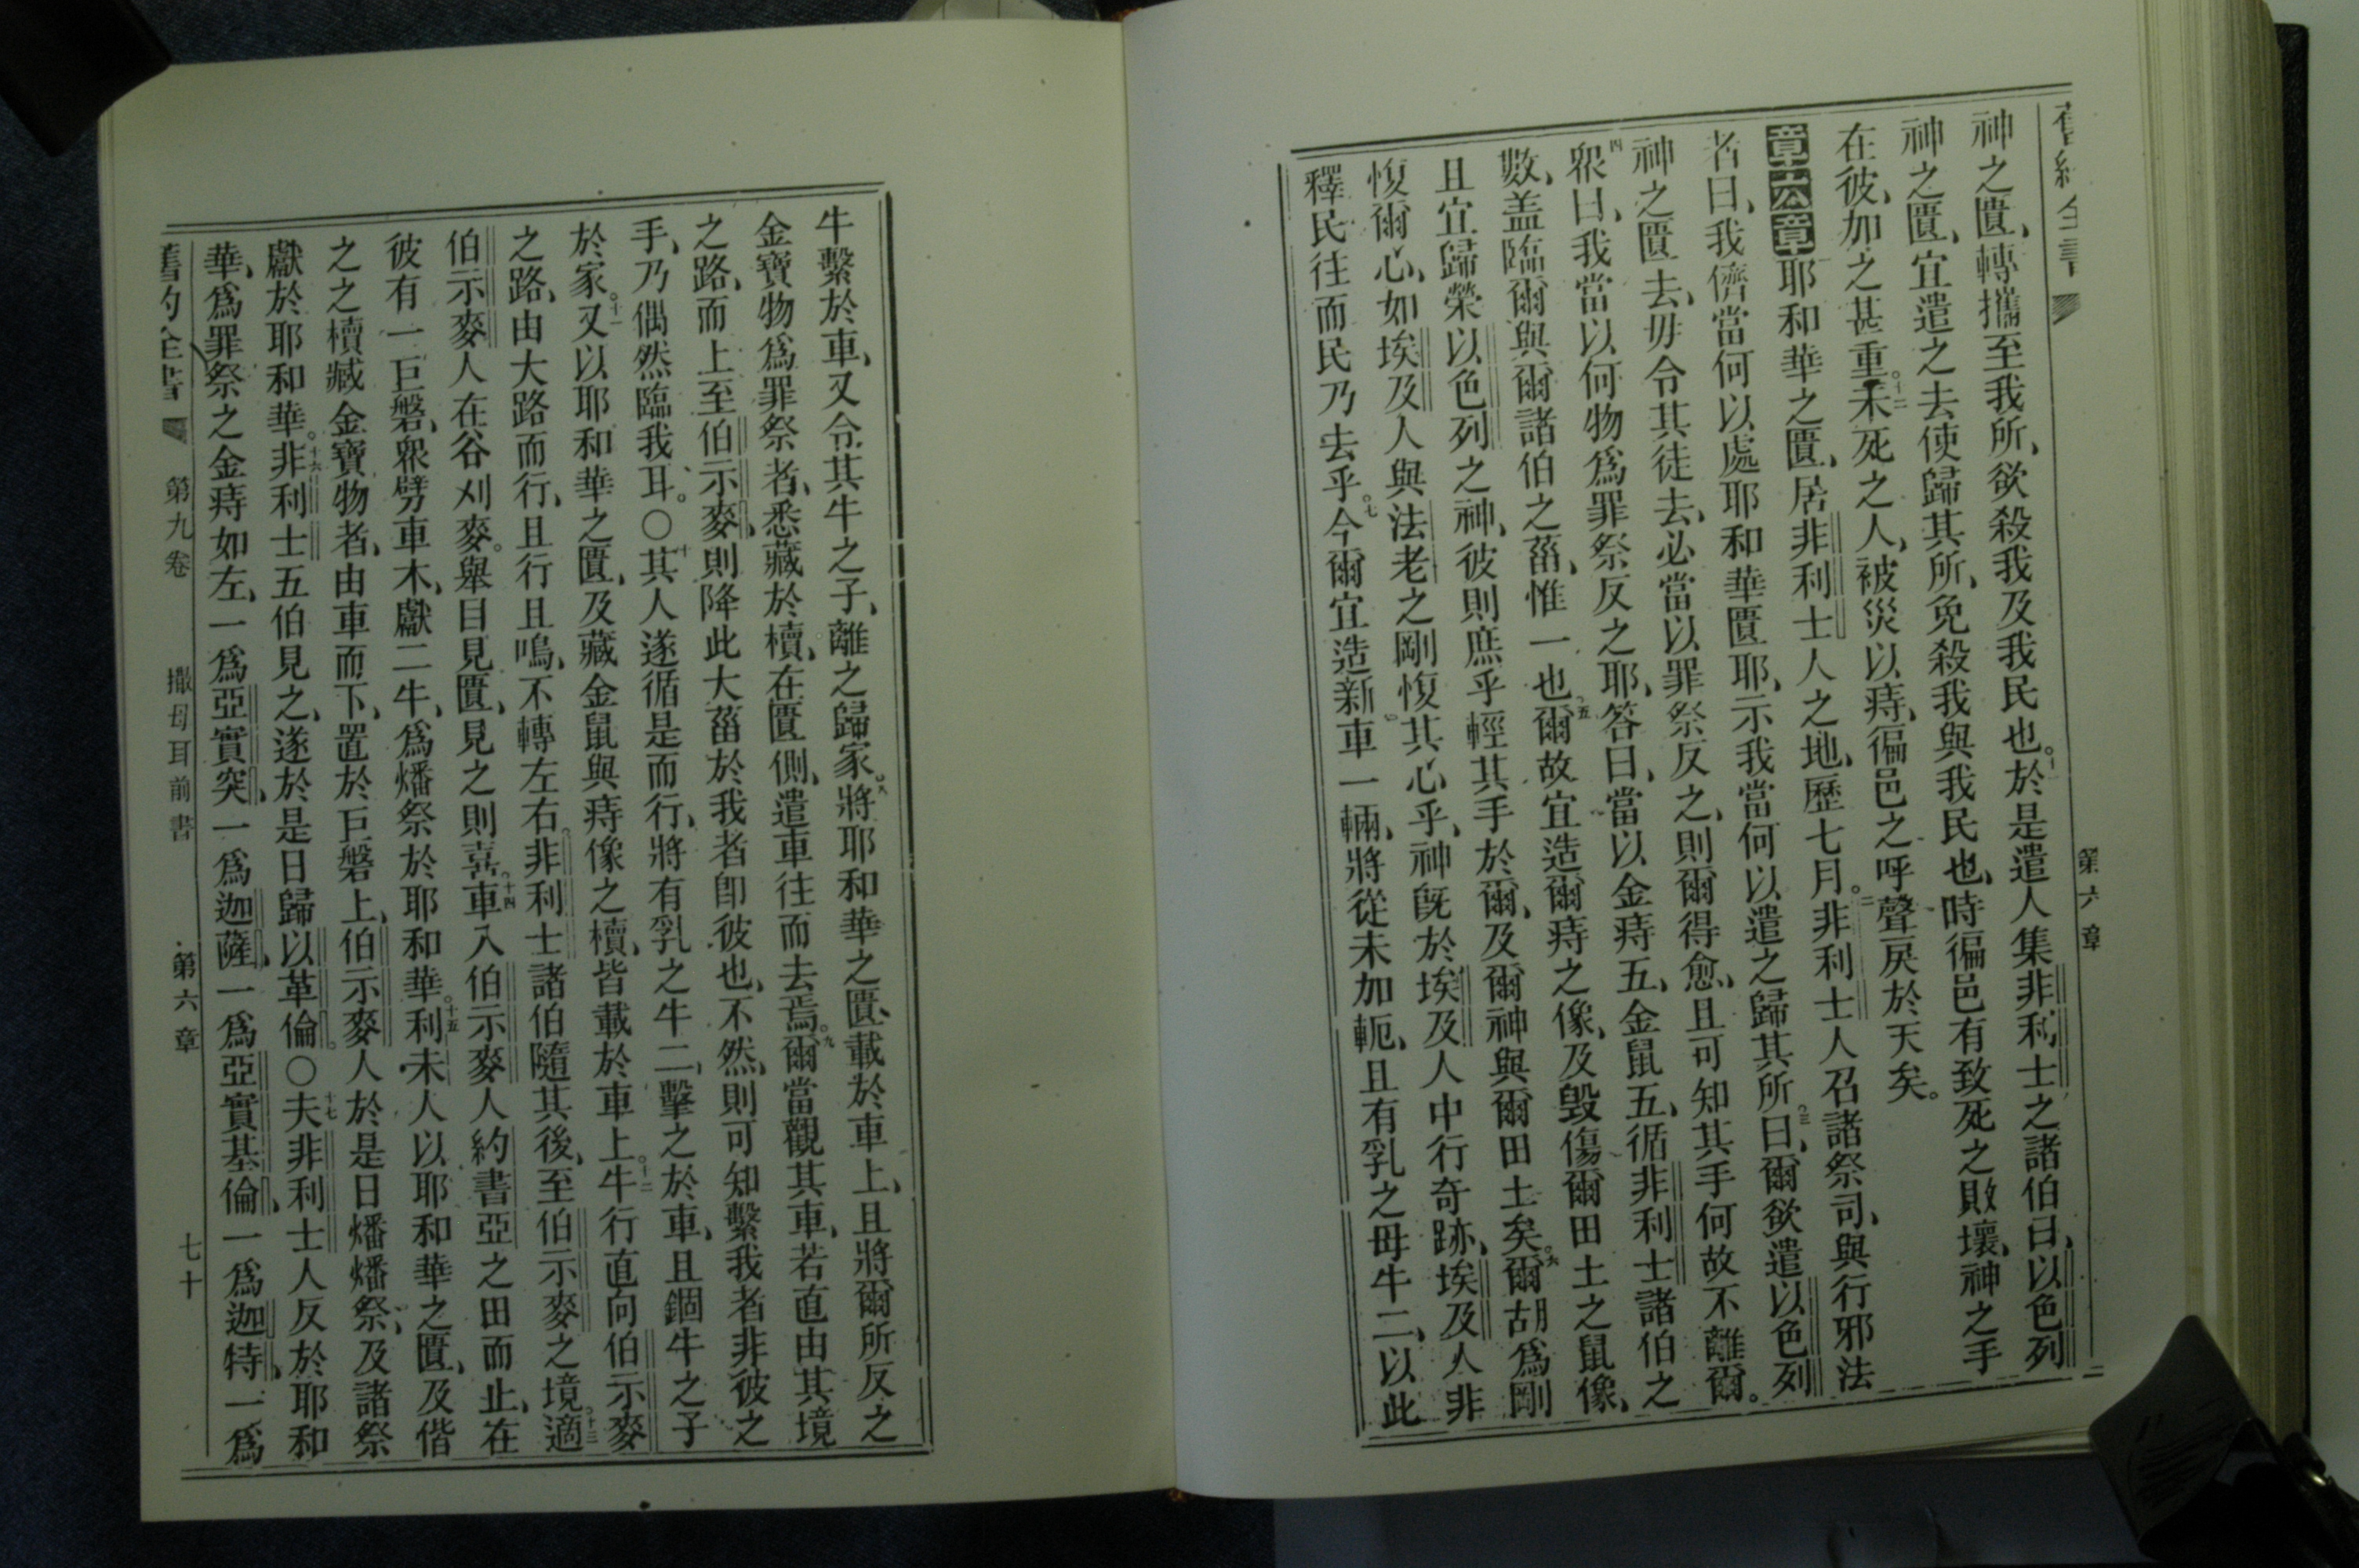 舊約全書
第六章
神之匱、轉攜至我所、欲殺我及我民也。十一於是遣人集非利士之諸伯曰、以色列
神之匱、宜遣之去使歸其所、免殺我與我民也、時徧邑有致死之敗壞、神之手
在彼、加之甚重。十二未死之人、被災以痔、徧邑之呼聲戾於天矣。
第六章耶和華之匱、居非利士人之地、歷七月。二非利士人召諸祭司、與行邪法
者曰、我儕當何以處耶和華匱耶、示我當何以遣之歸其所。三曰、爾欲遣以色列
神之匱去、毋令其徒去、必當以罪祭反之、則爾得愈、且可知其手何故不離爾。
四衆曰、我當以何物爲罪祭反之耶、答曰、當以金痔五、金鼠五、循非利士諸伯之
數、盖臨爾與爾諸伯之菑、惟一也。五爾故宜造爾痔之像、及毁傷爾田土之鼠像、
且宜歸榮以色列之神、彼則庶乎輕其手於爾、及爾神與爾田土矣。六爾胡爲剛
愎爾心、如埃及人與法老之剛愎其心乎、神旣於埃及人中行奇跡、埃及人非
釋民往而民乃去乎。七今爾宜造新車一輛、將從未加軛、且有乳之母牛二、以此
牛繫於車、又令其牛之子、離之歸家。八將耶和華之匱、載於車上、且將爾所反之
金寶物爲罪祭者、悉藏於櫝、在匱側、遣車往而去焉。九爾當觀其車、若直由其境
之路、而上至伯示麥、則降此大菑於我者卽彼也、不然、則可知繫我者非彼之
手、乃偶然臨我耳。〇十其人遂循是而行、將有乳之牛二、擊之於車、且錮牛之子
於家。十一又以耶和華之匱、及藏金鼠與痔像之櫝、皆載於車上。十二牛行直向伯示麥
之路、由大路而行、且行且鳴、不轉左右。非利士諸伯隨其後、至伯示麥之境。十三適
伯示麥人在谷刈麥。舉目見匱、見之則喜。十四車入伯示麥人約書亞之田而止、在
彼有一巨磐、衆劈車木、獻二牛、爲燔祭於耶和華。十五利未人以耶和華之匱、及偕
之之櫝藏金寶物者、由車而下、置於巨磐上、伯示麥人於是日燔燔祭、及諸祭
獻於耶和華。十六非利士五伯見之、遂於是日歸以革倫。〇十七夫非利士人反於耶和
華、爲罪祭之金痔如左、一爲亞實突、一爲迦薩、一爲亞實基倫、一爲迦特、一爲
舊約全書 第九卷 撒母耳前書 第六章 七十